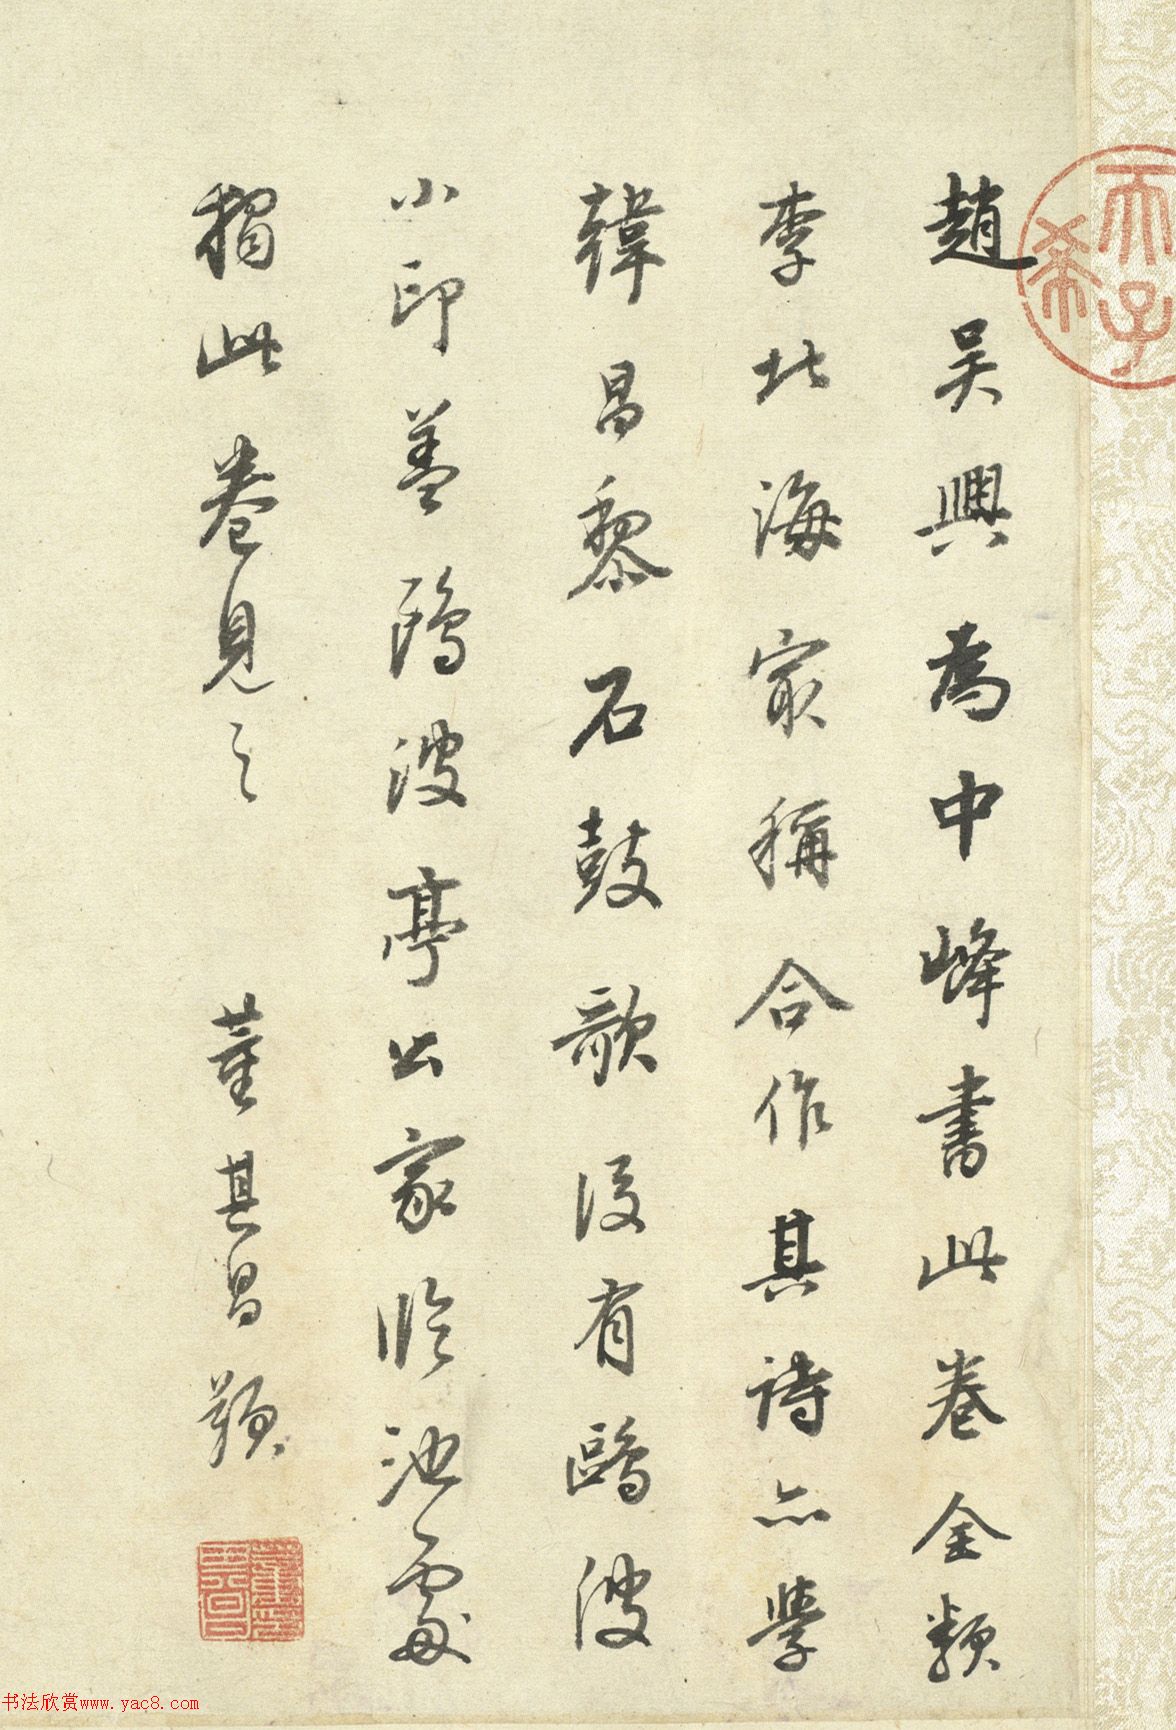 趙吳興為中峰書此卷全類
李北海最稱合作其詩亦學
韓昌黎石鼓歌後有鷗波
小印蓋鷗波亭公家臨池處
獨此卷見之 董其昌題
董其昌印
天子
希
书法欣赏www.yac8.com